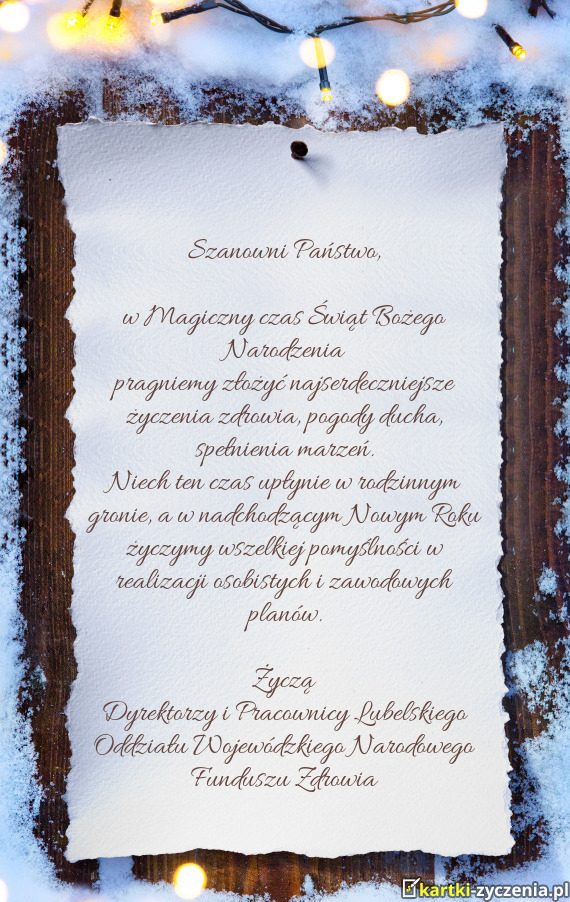 Szanowni Państwo,
w Magiczny czas Świąt Bożego
Narodzenia
pragniemy złożyć najserdeczniejsze
życzenia zdrowia, pogody ducha,
spełnienia marzeń.
Niech ten czas upłynie w rodzinnym
gronie, a w nadchodzącym Nowym Roku
życzymy wszelkiej pomyślności w
realizacji osobistych i zawodowych
planów.
Życzą
Dyrektorzy i Pracownicy Lubelskiego
Oddziału Wojewódzkiego Narodowego
Funduszu Zdrowia
kartki-zyczenia.pl